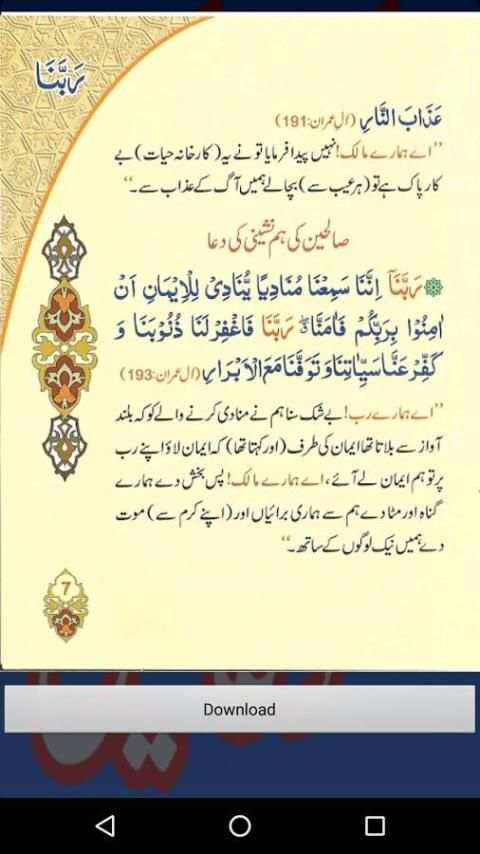 رَبَّنَا
عَذَابَ النَّارِ (اٰل عمران:191)
’’اے ہمارے مالک! نہیں پیدا فرمایا تو نے یہ (کارخانہ حیات) بے
کار پاک ہے تو (ہر عیب سے) بچالے ہمیں آگ کے عذاب سے۔‘‘
صالحین کی ہم نشینی کی دعا
رَبَّنَاۤ اِنَّنَا سَمِعْنَا مُنَادِيًا يُّنَادِيْ لِلْاِيْمَانِ اَنْ
اٰمِنُوْا بِرَبِّكُمْ فَاٰمَنَّا ۖ رَبَّنَا فَاغْفِرْ لَنَا ذُنُوْبَنَا وَ
كَفِّرْ عَنَّا سَيِّاٰتِنَا وَ تَوَفَّنَا مَعَ الْاَبْرَارِ (اٰل عمران:193)
’’اے ہمارے رب! بے شک سنا ہم نے منادی کرنے والے کو کہ بلند
آواز سے بلاتا تھا ایمان کی طرف (اور کہتا تھا) کہ ایمان لاؤ اپنے رب
پر تو ہم ایمان لے آئے، اے ہمارے مالک! پس بخش دے ہمارے
گناہ اور مٹا دے ہم سے ہماری برائیاں اور (اپنے کرم سے) موت
دے ہمیں نیک لوگوں کے ساتھ۔‘‘
7
Download